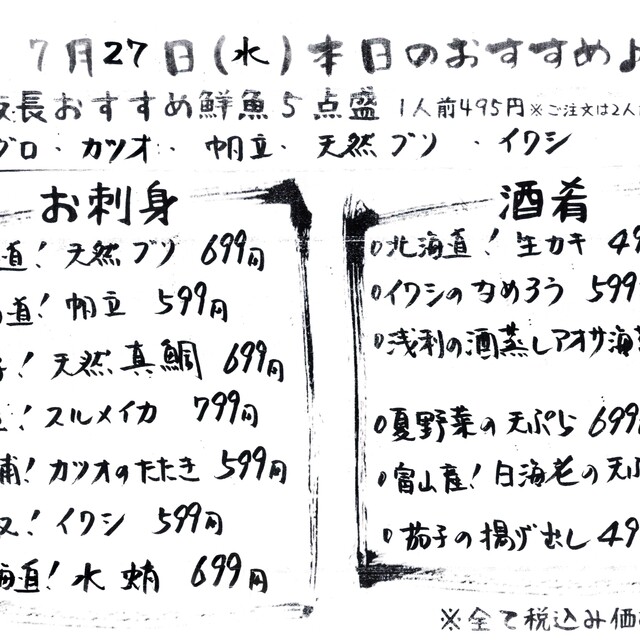 7月27日(水)本日のおすすめ♪
長おすすめ鮮魚5点盛 1人前495円 ※ご注文は2人
グロ・カツオ・帆立・天然ブリ・イワシ
お刺身
道!天然ブリ 699円
道!帆立 599円
!天然真鯛 699円
!スルメイカ 799円
浦!カツオのたたき 599円
!イワシ 599円
海道!水蛸 699円
酒肴
○北海道!生カキ 49
○イワシのなめろう 599
○浅利の酒蒸しアオサ海
○夏野菜の天ぷら 699
○富山産!白海老の天ぷ
○茄子の揚げむし 49
※全て税込み価